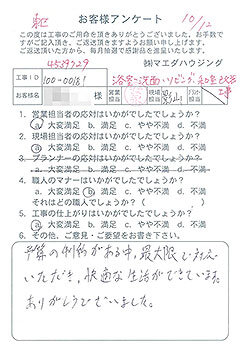 お客様アンケート 10/12
この度は工事のご用命を頂きありがとうございました。お手数で
すがご記入頂き、ご返送頂きますようお願い申し上げます。
ご返送頂いた方から、毎月抽選で感謝品を進呈致します。
(株)マエダハウジング
工事ID 100-00161 浴室・洗面・リビング・和室改装工事
お客様名 様 営業担当 現場担当
1. 営業担当者の応対はいかがでしたでしょうか?
a. 大変満足 b. 満足 c. やや不満 d. 不満
2. 現場担当者の応対はいかがでしたでしょうか?
a. 大変満足 b. 満足 c. やや不満 d. 不満
3. プランナーの応対はいかがでしたでしょうか?
a. 大変満足 b. 満足 c. やや不満 d. 不満
4. 職人のマナーはいかがでしたでしょうか?
a. 大変満足 b. 満足 c. やや不満 d. 不満
それはどの職人でしょうか? ( )
5. 工事の仕上がりはいかがでしたでしょうか?
a. 大変満足 b. 満足 c. やや不満 d. 不満
6. その他、ご意見・ご要望をお書き下さい。
予算の制約がある中、最大限で対応
いただき、快適な生活ができています。
ありがとうございました。